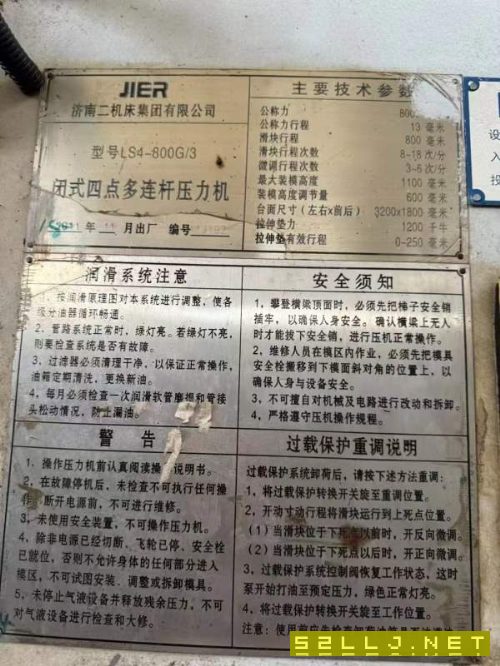 JIER
济南二机床集团有限公司
型号LS4-800G/3
闭式四点多连杆压力机
2011 年 11 月出厂 编号
主要技术参数
公称力 800
公称力行程 13 毫米
滑块行程 800 毫米
滑块行程次数 8-18 次/分
微调行程次数 3-6 次/分
最大装模高度 1100 毫米
装模高度调节量 600 毫米
台面尺寸(左右x前后) 3200x1800 毫米
拉伸垫力 1200 千牛
拉伸垫有效行程 0-250 毫米
润滑系统注意
1、按润滑原理图对本系统进行调整,使各
级分油器循环畅通。
2、管路系统正常时,绿灯亮。若绿灯不亮,
则要检查系统是否有故障。
3、过滤器必须清理干净,以保证正常操作,
油箱定期清洗,更换新油。
4、每月必须检查一次润滑软管磨损和管接
头松动情况,防止漏油。
安全须知
1、攀登横梁顶面时,必须先把梯子安全销
插牢,以确保人身安全。确认横梁上无人
时才能拔下安全销,进行压机正常操作。
2、维修人员在模区内作业,必须先把模具
安全栓搬移到下模面斜对角的位置上,以
确保人身与设备安全。
3、不可擅自对机械及电路进行改动和拆卸。
4、严格遵守压机操作规程。
警告
1、操作压力机前认真阅读操作说明书。
2、在故障停机后,未检查不可执行任何操
作,断开电源前,不可进行维修。
3、未使用安全装置,不可操作压力机。
4、除非电源已经切断、飞轮已停、安全栓
已就位,否则不允许身体的任何部分进入
模区,不可试图安装、调整或拆卸模具。
5、未停止气液设备并释放残余压力,不可
对气液设备进行检查和大修。
过载保护重调说明
过载保护系统卸荷后,请按下述方法重调:
1、将过载保护转换开关旋至重调位置。
2、开动寸动行程将滑块运行到上死点位置。
(1)当滑块位于下死点以前时,开反向微调。
(2)当滑块位于下死点以后时,开正向微调。
3、过载保护系统控制阀恢复工作状态,这时
泵开始打油至预定压力,绿色正常灯亮。
4、将过载保护转换开关旋至工作位置。
注意:使用前应先检查
设
入
投
52LLJ.NET